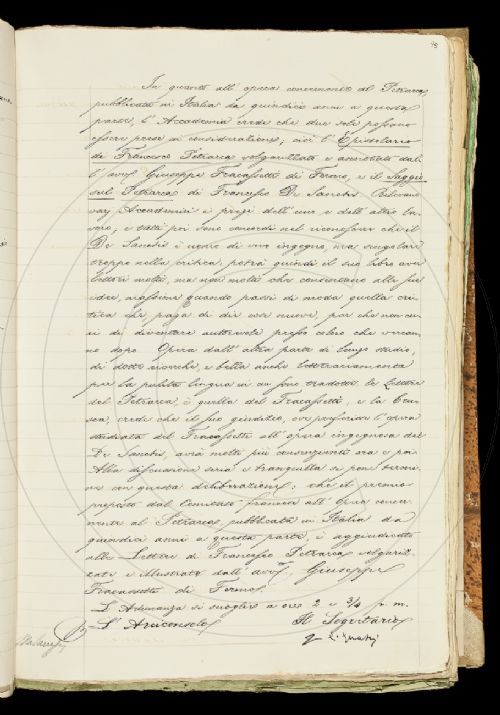 In quanto all'opera concernente al Petrarca
pubblicata in Italia da quindici anni a questa
parte, l'Accademia crede che due sole possono
essere prese in considerazione, cioè l'Epistolario
di Francesco Petrarca volgarizzato e annotato dal
l'avv. Giuseppe Fracassetti di Fermo, e il Saggio
sul Petrarca di Francesco De Sanctis. Rilevano
varj Accademici i pregi dell'uno e dell'altro la-
voro, e tutti poi sono concordi nel riconoscere che il
De Sanctis è uomo di vivo ingegno, ma singolare
troppo nella critica, potrà quindi il suo libro aver
lettori molti, ma non molti che consentano alle sue
idee, massime quando passi di moda quella cri-
tica che paga di dir cose nuove, pur che non cu-
ri di diventare autorevole presso coloro che verran-
no dopo. Opera dall'altra parte di lungo studio,
di dotte ricerche, e bella anche letterariamente
per la pulita lingua in cui sono tradotte le Lettere
del Petrarca, è quella del Fracassetti, e la Cru-
sca, crede che il suo giudizio, ove preferisca l'opera
studiata del Fracassetti all'opera ingegnosa del
De Sanctis, avrà molti più consenzienti ora e poi.
Alla discussione seria e tranquilla si pone termi-
ne con questa deliberazione: che il premio
proposto dal Comitato francese all'Opera concer-
nente al Petrarca, pubblicata in Italia da
quindici anni a questa parte, è aggiudicato
alle Lettere di Francesco Petrarca volgariz-
zate e illustrate dall'avv. Giuseppe
Fracassetti di Fermo.
L'Adunanza si scioglie a ore 2 e 3/4 p. m.
L'Arciconsolo Il Segretario